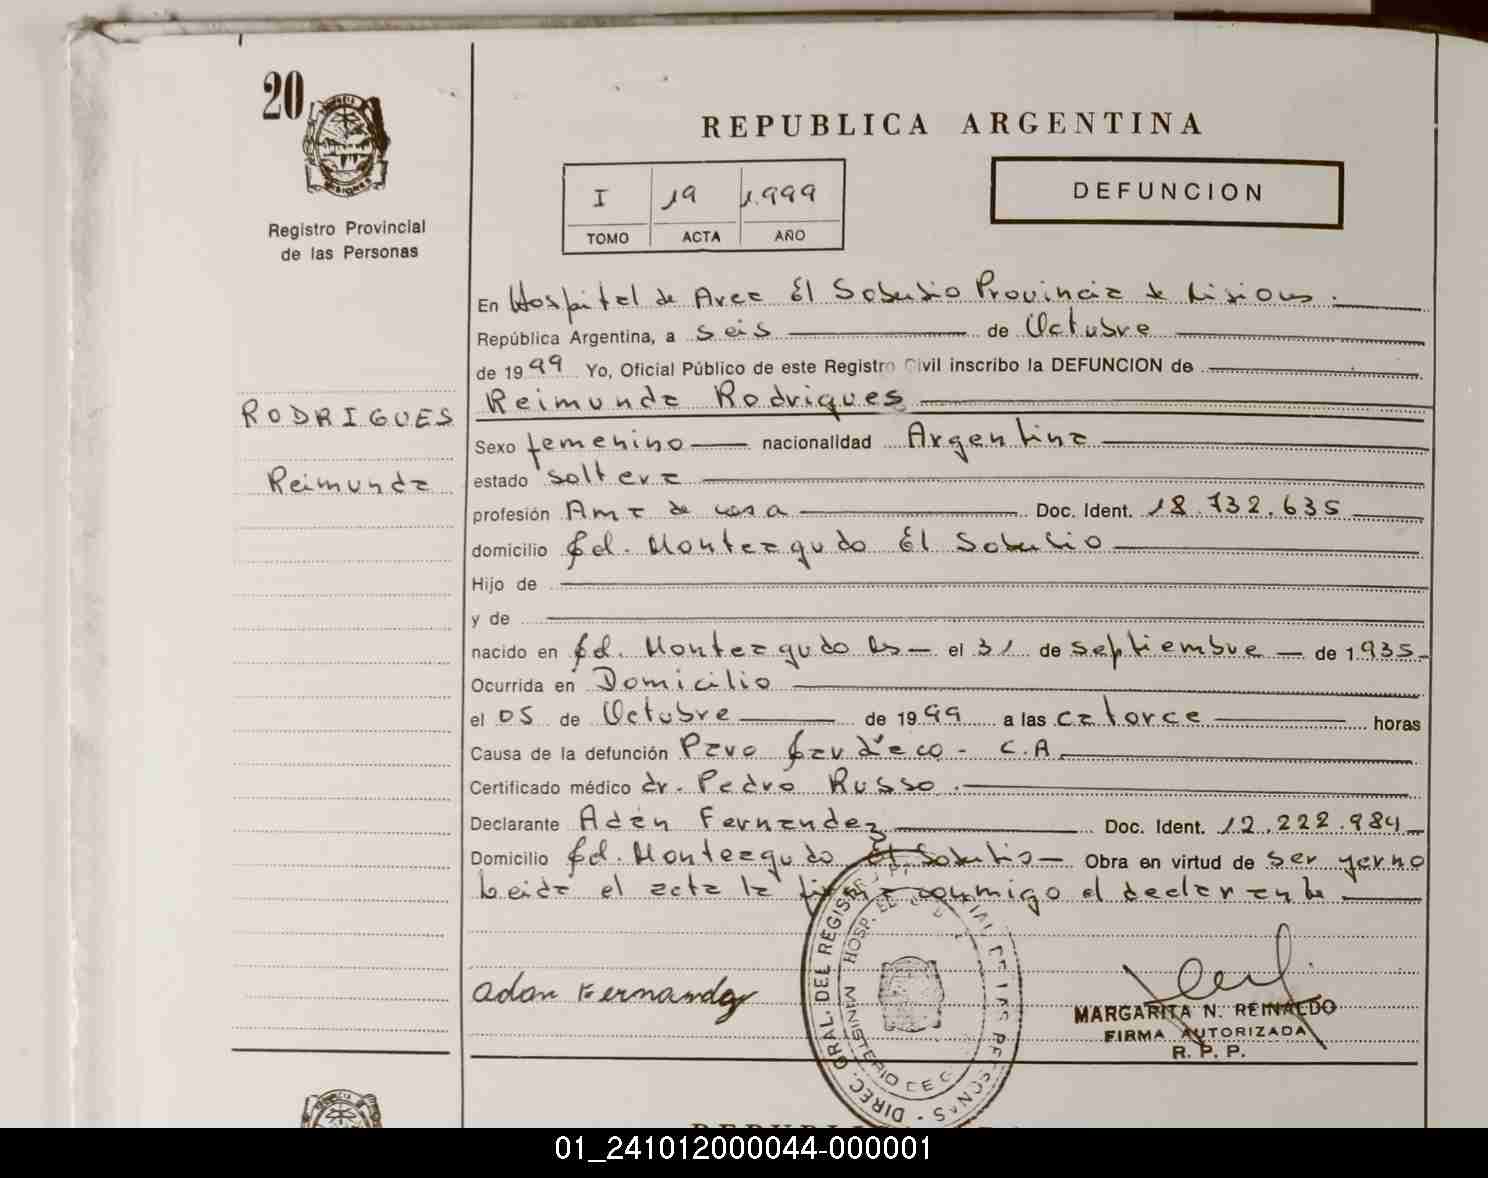 20
Registro Provincial
de las Personas
REPUBLICA ARGENTINA
I 19 1.999
TOMO ACTA AÑO
DEFUNCION
En Hospital de Area El Soberbio Provincia de Misiones.
República Argentina, a seis de Octubre
de 1999 Yo, Oficial Público de este Registro Civil inscribo la DEFUNCION de
Reimunda Rodrigues
RODRIGUES
Reimunda
Sexo femenino nacionalidad Argentina
estado soltera
profesión Ama de casa Doc. Ident. 18.732.635
domicilio Monteagudo El Soberbio
Hijo de
y de
nacido en Monteagudo el 31 de septiembre de 1.935
Ocurrida en Domicilio
el 05 de Octubre de 1999 a las catorce horas
Causa de la defunción Paro C.A
Certificado médico dr. Pedro Russo.
Declarante Adán Fernandez Doc. Ident. 12.222.984
Domicilio Monteagudo El Soberbio Obra en virtud de ser yerno
Leida el acta la firma conmigo el declarante
adan Fernandez
DIREC. GRAL. DEL REGISTRO PROVINCIAL DE LAS PERSONAS
MINISTERIO DE G.
HOSP. EL
MARGARITA N. REINALDO
FIRMA AUTORIZADA
R. P. P.
01_241012000044-000001